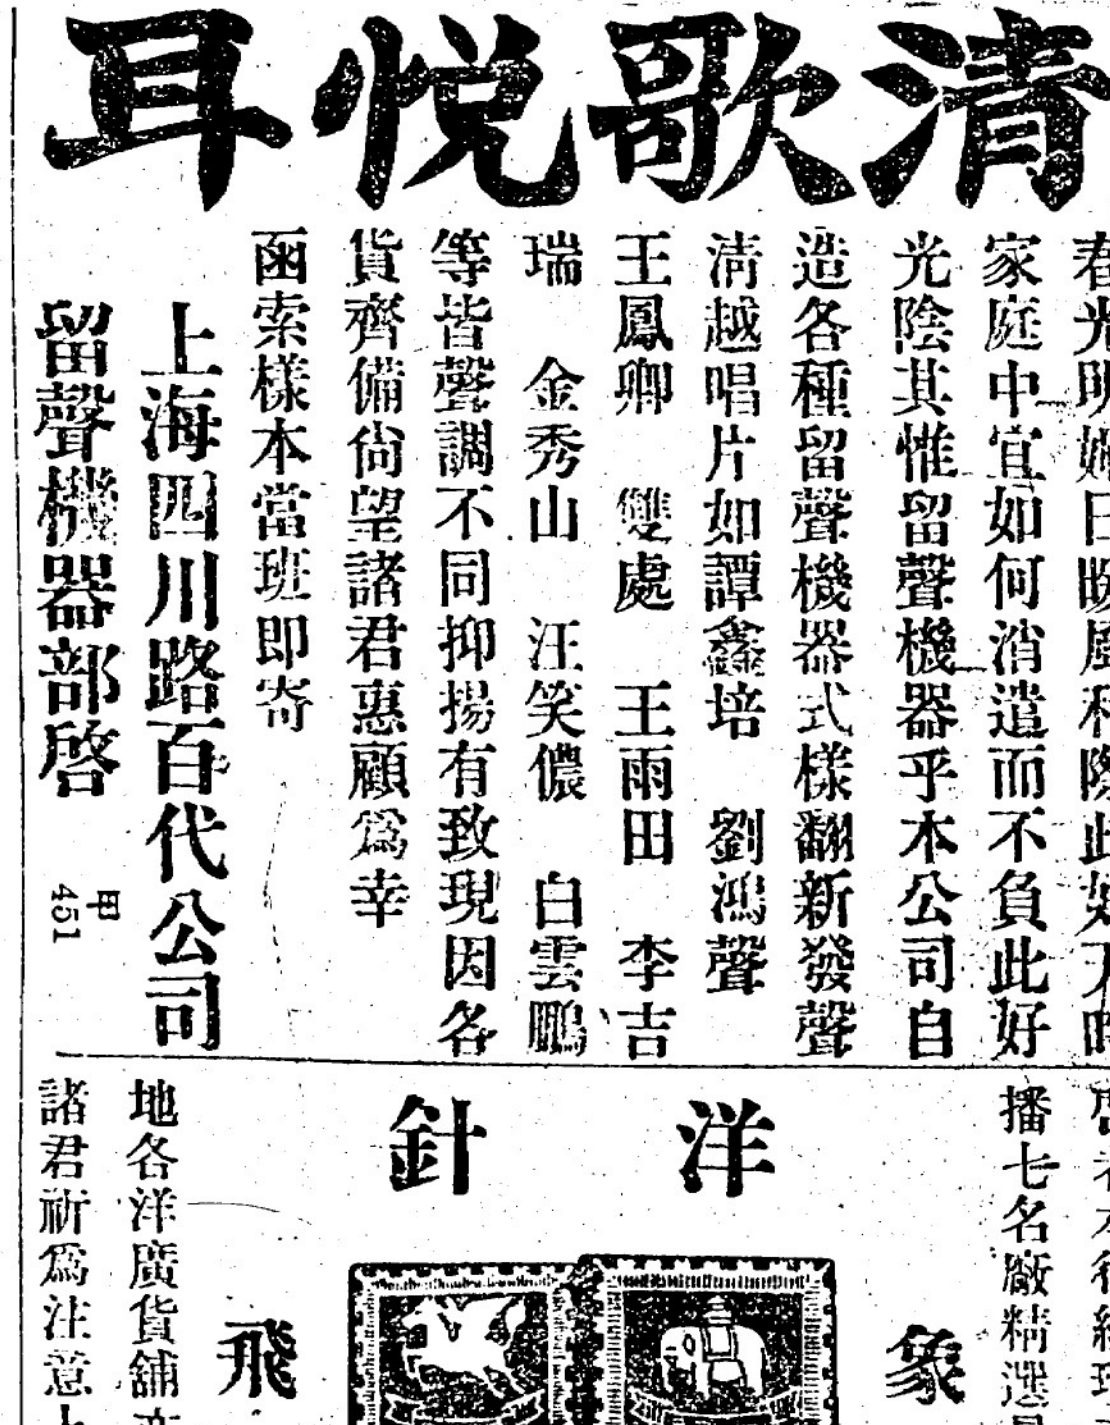 清歌悅耳
春光明媚日暖風和際此好天時
家庭中宜如何消遣而不負此好
光陰其惟留聲機器乎本公司自
造各種留聲機器式樣翻新發聲
淸越唱片如譚鑫培 劉鴻聲
王鳳卿 雙處 王雨田 李吉
瑞 金秀山 汪笑儂 白雲鵬
等皆聲調不同抑揚有致現因各
貨齊備尙望諸君惠顧爲幸
函索樣本當班即寄
上海四川路百代公司
留聲機器部啓
甲
451
洋針
播七名廠精選
象
飛
地各洋廣貨舖
諸君祈爲注意